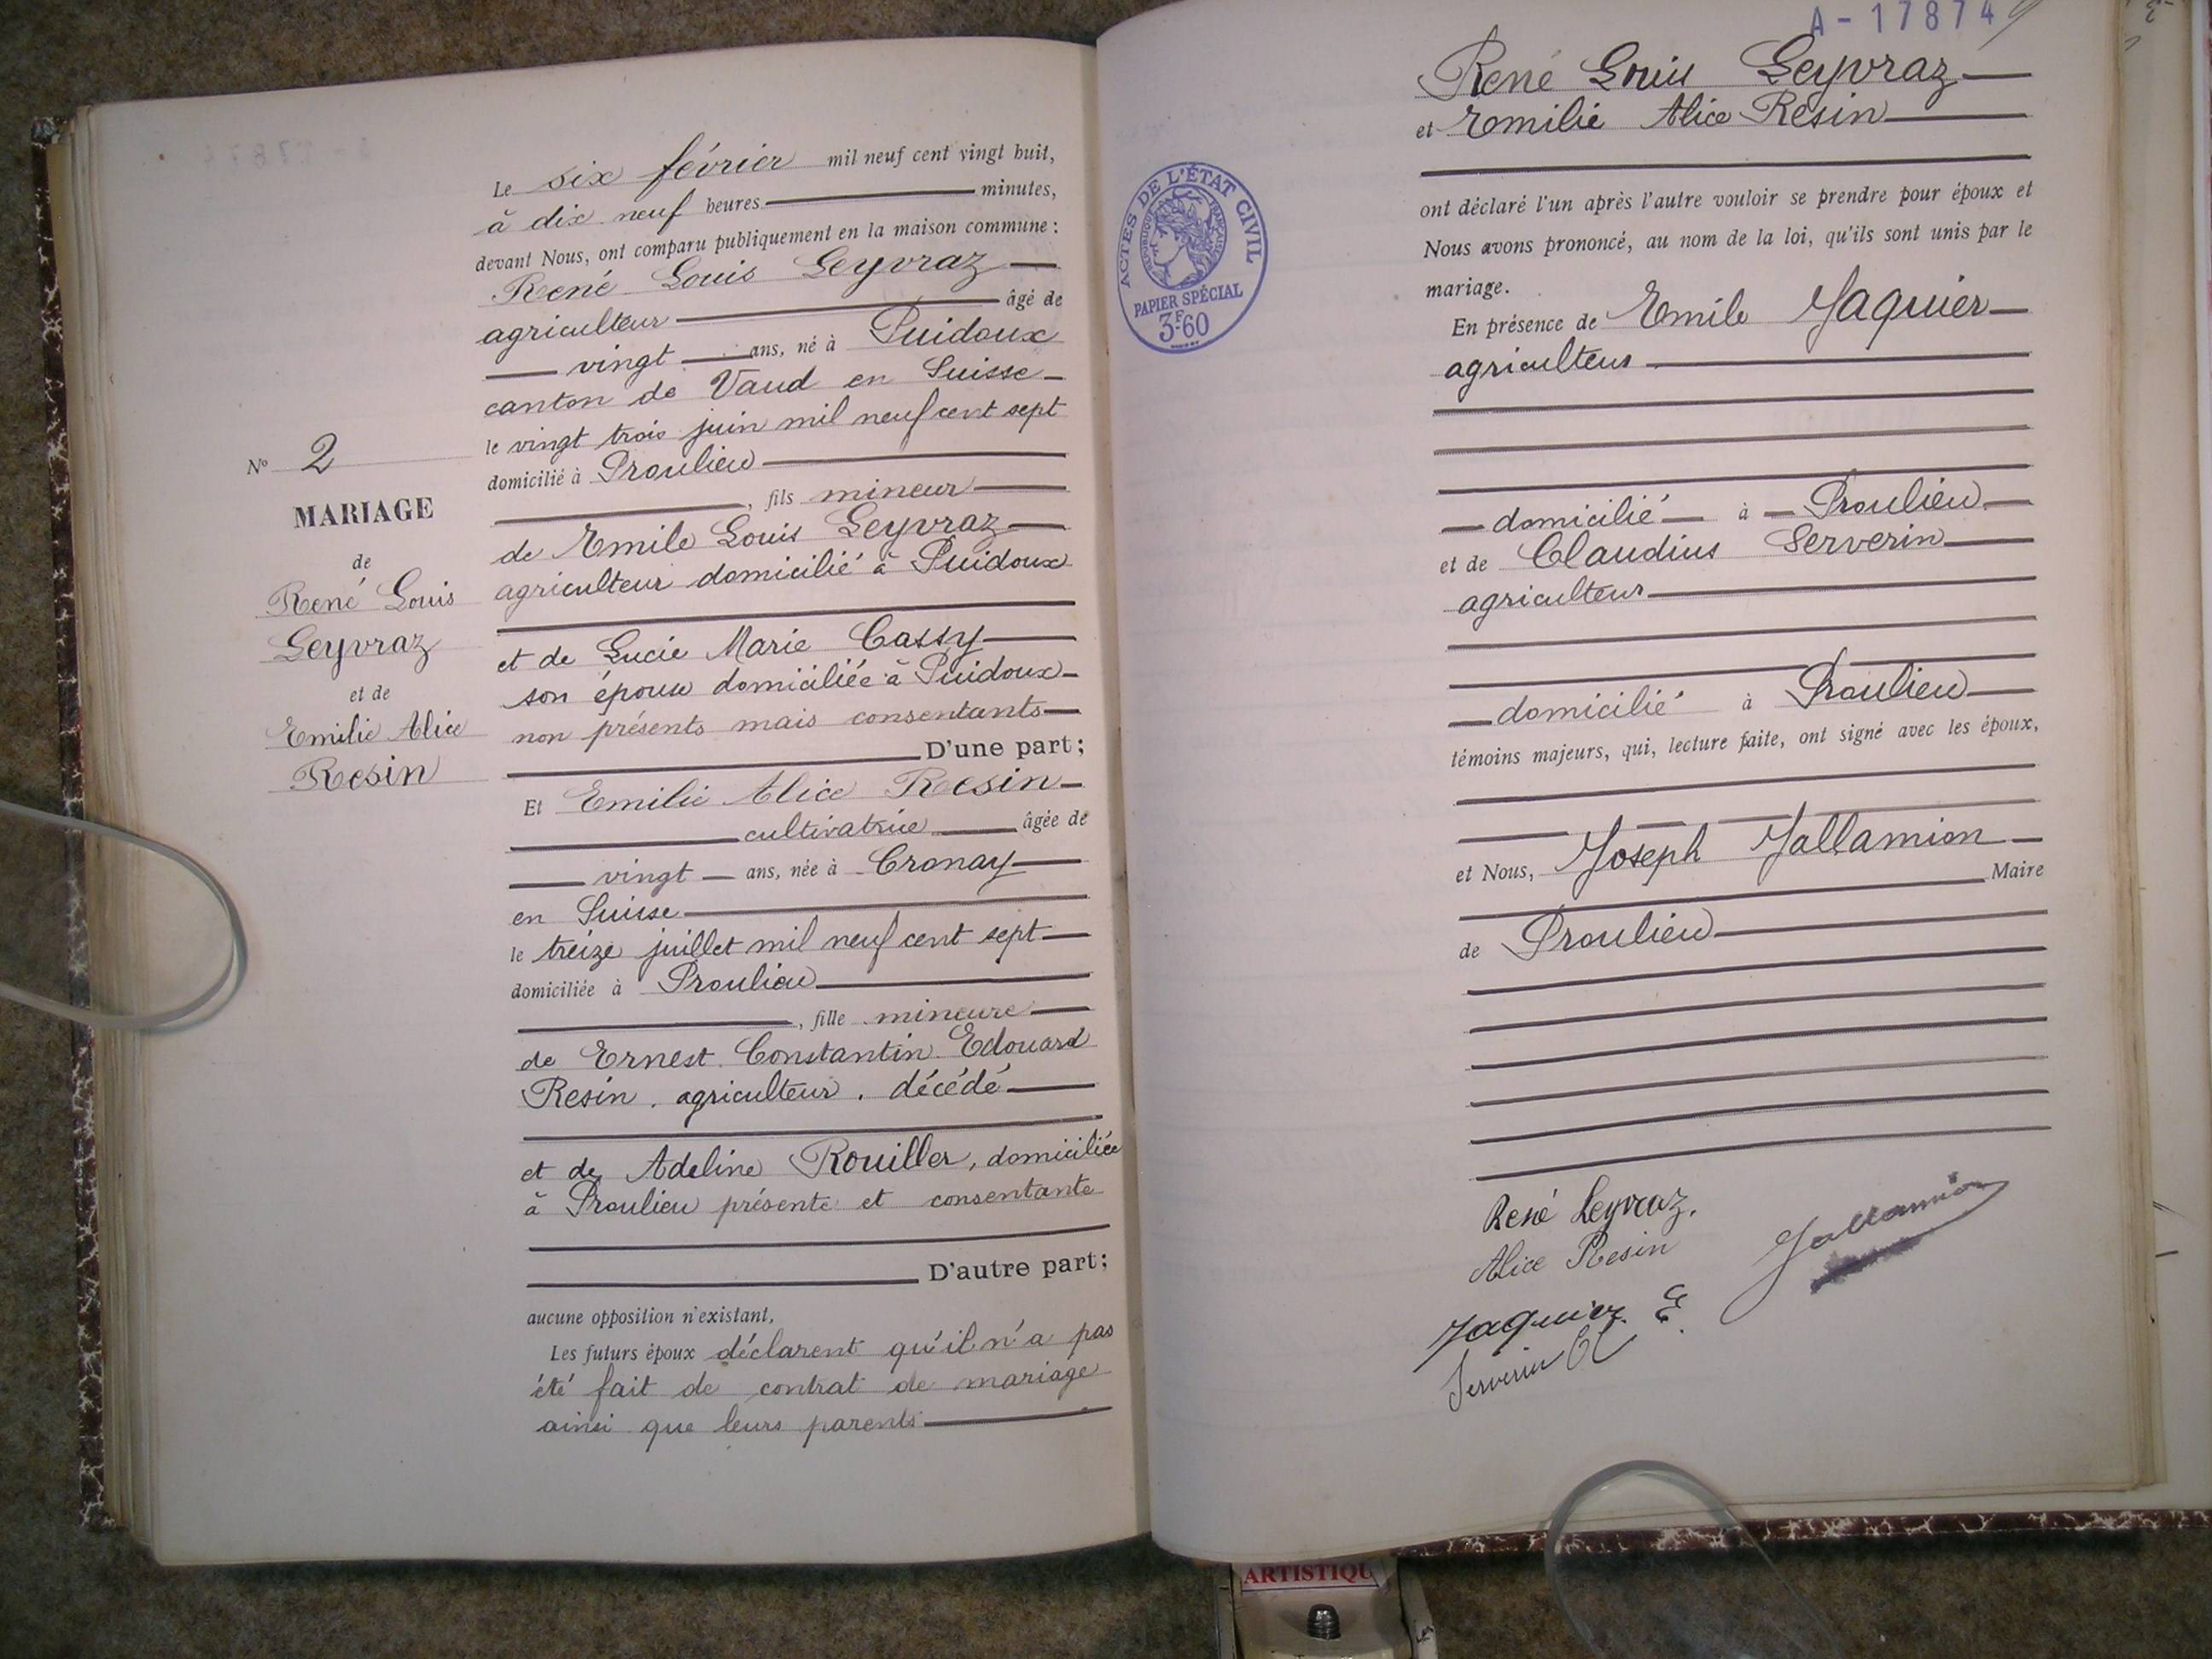 Le six février mil neuf cent vingt huit,
à dix neuf heures minutes,
devant Nous, ont comparu publiquement en la maison commune :
René Louis Leyvraz
agriculteur âgé de
vingt ans, né à Puidoux
canton de Vaud en Suisse
le vingt trois juin mil neuf cent sept
domicilié à Proulieu
, fils mineur
de Emile Louis Leyvraz
agriculteur domicilié à Puidoux
et de Lucie Marie Cassy
son épouse domiciliée à Puidoux
non présents mais consentants
D'une part ;
N° 2
MARIAGE
de
René Louis
Leyvraz
et de
Emilie Alice
Resin
Et Emilie Alice Resin
cultivatrice âgée de
vingt ans, née à Cronay
en Suisse
le treize juillet mil neuf cent sept
domiciliée à Proulieu
, fille mineure
de Ernest Constantin Edouard
Resin . agriculteur . décédé
et de Adeline Rouiller, domiciliée
à Proulieu présente et consentante
D'autre part ;
aucune opposition n'existant,
Les futurs époux déclarent qu'il n'a pas
été fait de contrat de mariage
ainsi que leurs parents
A-17874
René Louis Leyvraz
et Emilie Alice Resin
ont déclaré l'un après l'autre vouloir se prendre pour époux et
Nous avons prononcé, au nom de la loi, qu'ils sont unis par le
mariage.
En présence de Emile Jaquier
agriculteur
domicilié à Proulieu
et de Claudius Serverin
agriculteur
domicilié à Proulieu
témoins majeurs, qui, lecture faite, ont signé avec les époux,
et Nous, Joseph Jallamion
Maire
de Proulieu
René Leyvraz.
Alice Resin
Jallamion
Jaquier E.
Serverin Cl
ACTES DE L'ÉTAT CIVIL
RÉPUBLIQUE FRANÇAISE
PAPIER SPÉCIAL
3F60
ARTISTIQU